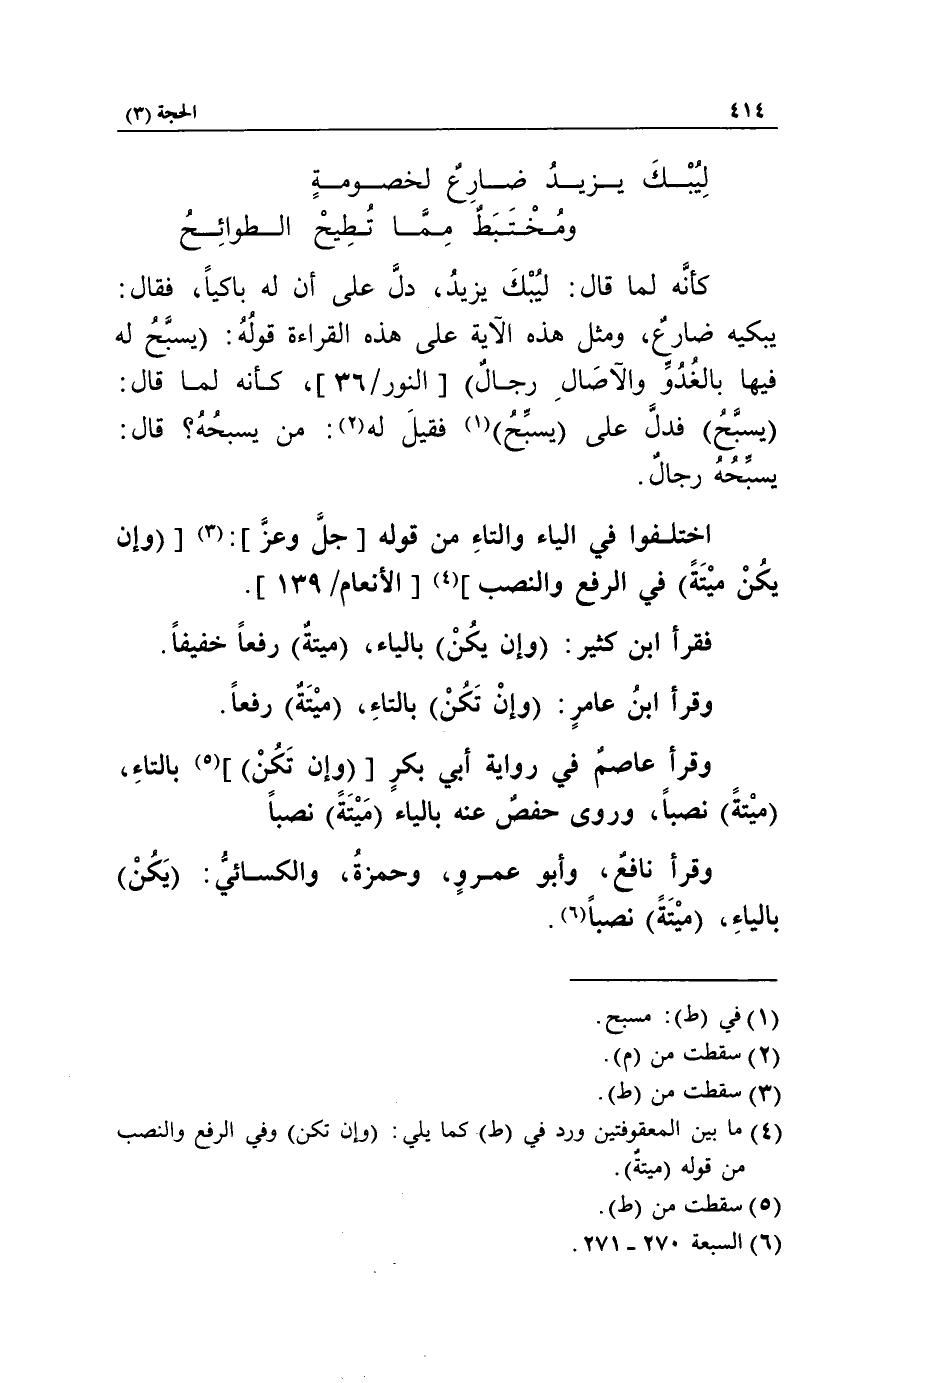 ٤١٤
الحجة (٣)
لِيُبْكَ يزيدُ ضارِعٌ لخصومةٍ
ومُخْتَبَطٌ مِمَّا تُطِيحُ الطوائِحُ
كأنَّه لما قال: لِيُبْكَ يزيدُ، دلَّ على أن له باكياً، فقال:
يبكيه ضارعٌ، ومثل هذه الآية على هذه القراءة قولُهُ: (يسبَّحُ له
فيها بالغُدُوِّ والآصَالِ رجالٌ) [ النور/٣٦ ]، كأنه لما قال:
(يسبَّحُ) فدلَّ على (يسبِّحُ)(١) فقيلَ له(٢): من يسبحُهُ؟ قال:
يسبِّحُهُ رجالٌ.
اختلفوا في الياء والتاءِ من قوله [ جلَّ وعزَّ ]:(٣) [ (وإن
يكُنْ ميْتَةً) في الرفع والنصب ](٤) [ الأنعام/ ١٣٩ ].
فقرأ ابن كثير: (وإن يكُنْ) بالياء، (ميتةٌ) رفعاً خفيفاً.
وقرأ ابنُ عامرٍ: (وإنْ تَكُنْ) بالتاءِ، (ميْتَةٌ) رفعاً.
وقرأ عاصمٌ في رواية أبي بكرٍ [ (وإن تَكُنْ) ](٥) بالتاءِ،
(ميْتةً) نصباً، وروى حفصٌ عنه بالياء (مَيْتَةً) نصباً
وقرأ نافعٌ، وأبو عمروٍ، وحمزةُ، والكسائيُّ: (يَكُنْ)
بالياءِ، (ميْتَةً) نصباً(٦).
(١) في (ط): مسبح.
(٢) سقطت من (م).
(٣) سقطت من (ط).
(٤) ما بين المعقوفتين ورد في (ط) كما يلي: (وإن تكن) وفي الرفع والنصب
من قوله (ميتةٌ).
(٥) سقطت من (ط).
(٦) السبعة ٢٧٠ ـ ٢٧١.